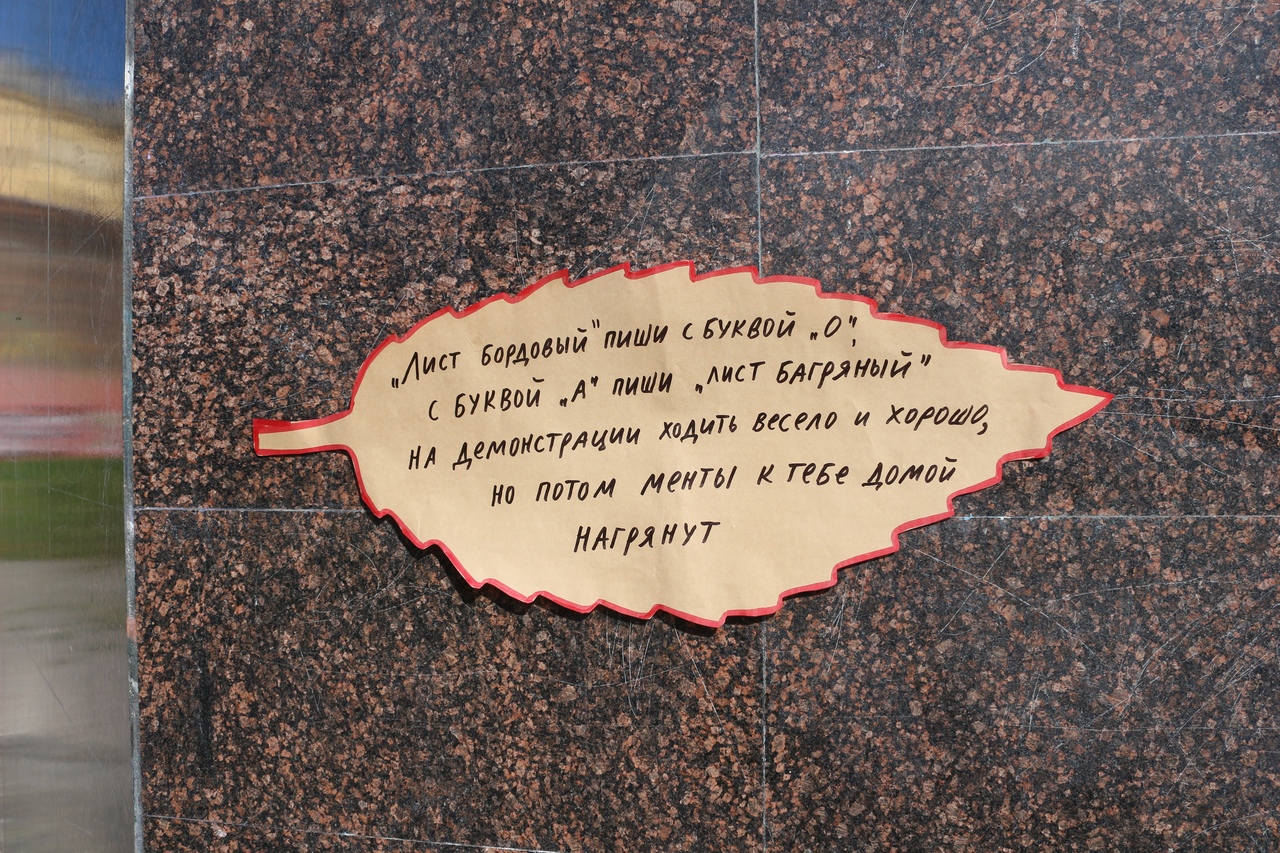 „Лист бордовый" пиши с буквой „О",
с буквой „А" пиши „лист багряный"
на демонстрации ходить весело и хорошо,
но потом менты к тебе домой
нагрянут